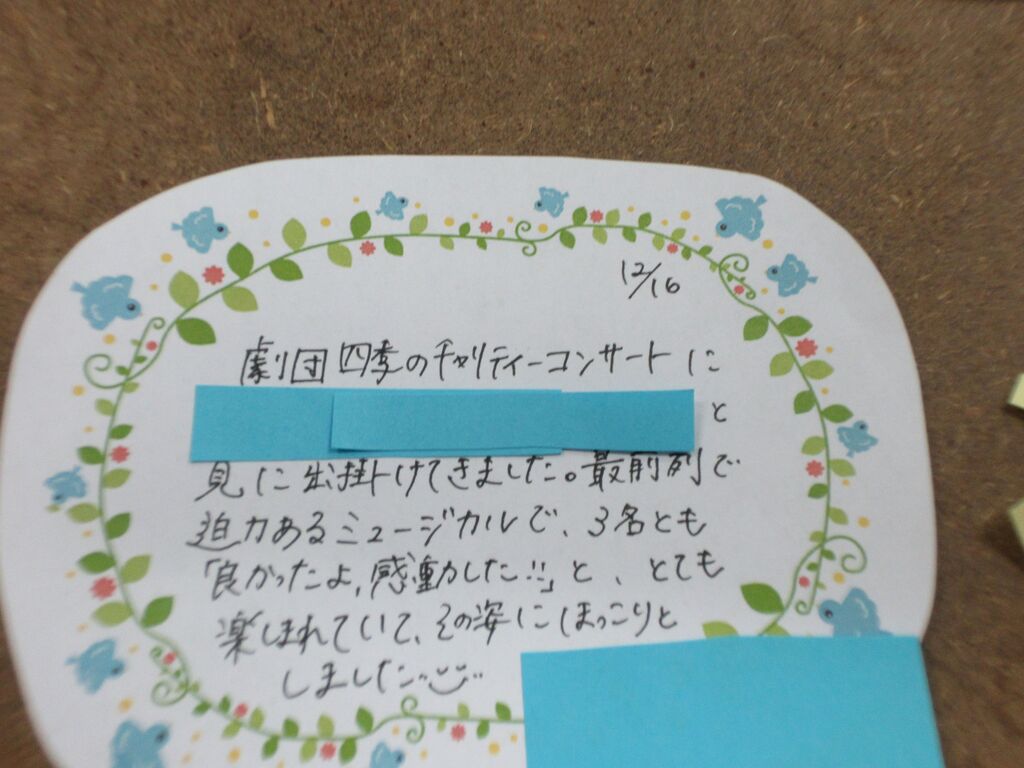 12/16
劇団四季のチャリティーコンサートに
と
見に出掛けてきました。最前列で
迫力あるミュージカルで、3名とも
「良かったよ,感動した!!」と、とても
楽しまれていて、その姿にほっこりと
しました